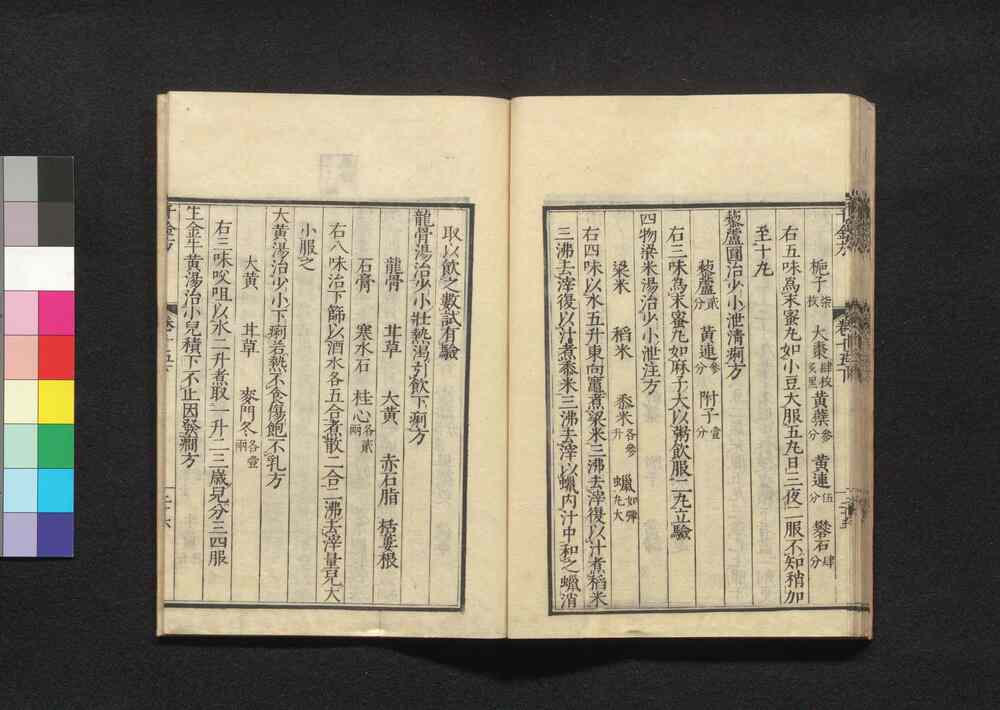 梔子柒枚　大棗肆枚炙黑　黄蘗參分　黄連伍分　礬石肆分
右五味爲末蜜丸如小豆大服五丸日三夜二服不知稍加
至十丸
藜蘆圓治少小泄清痢方
藜蘆貳分　黄連參分　附子壹分
右三味爲末蜜丸如麻子大以粥飲服二丸立驗
四物粱米湯治少小泄注方
粱米　稻米　黍米各參升　蠟如彈丸大
右四味以水五升東向竈煮粱米三沸去滓復以汁煮稻米
三沸去滓復以汁煮黍米三沸去滓以蠟内汁中和之蠟消
取以飲之數試有驗
龍骨湯治少小壯熱渴引飲下痢方
龍骨　甘草　大黄　赤石脂　栝蔞根
石膏　寒水石　桂心各貳兩
右八味治下篩以酒水各五合煮散二合二沸去滓量兒大
小服之
大黄湯治少小下痢若熱不食傷飽不乳方
大黄　甘草　麥門冬各壹兩
右三味㕮咀以水二升煮取一升二三歳兒分三四服
生金牛黄湯治小兒積下不止因發癇方